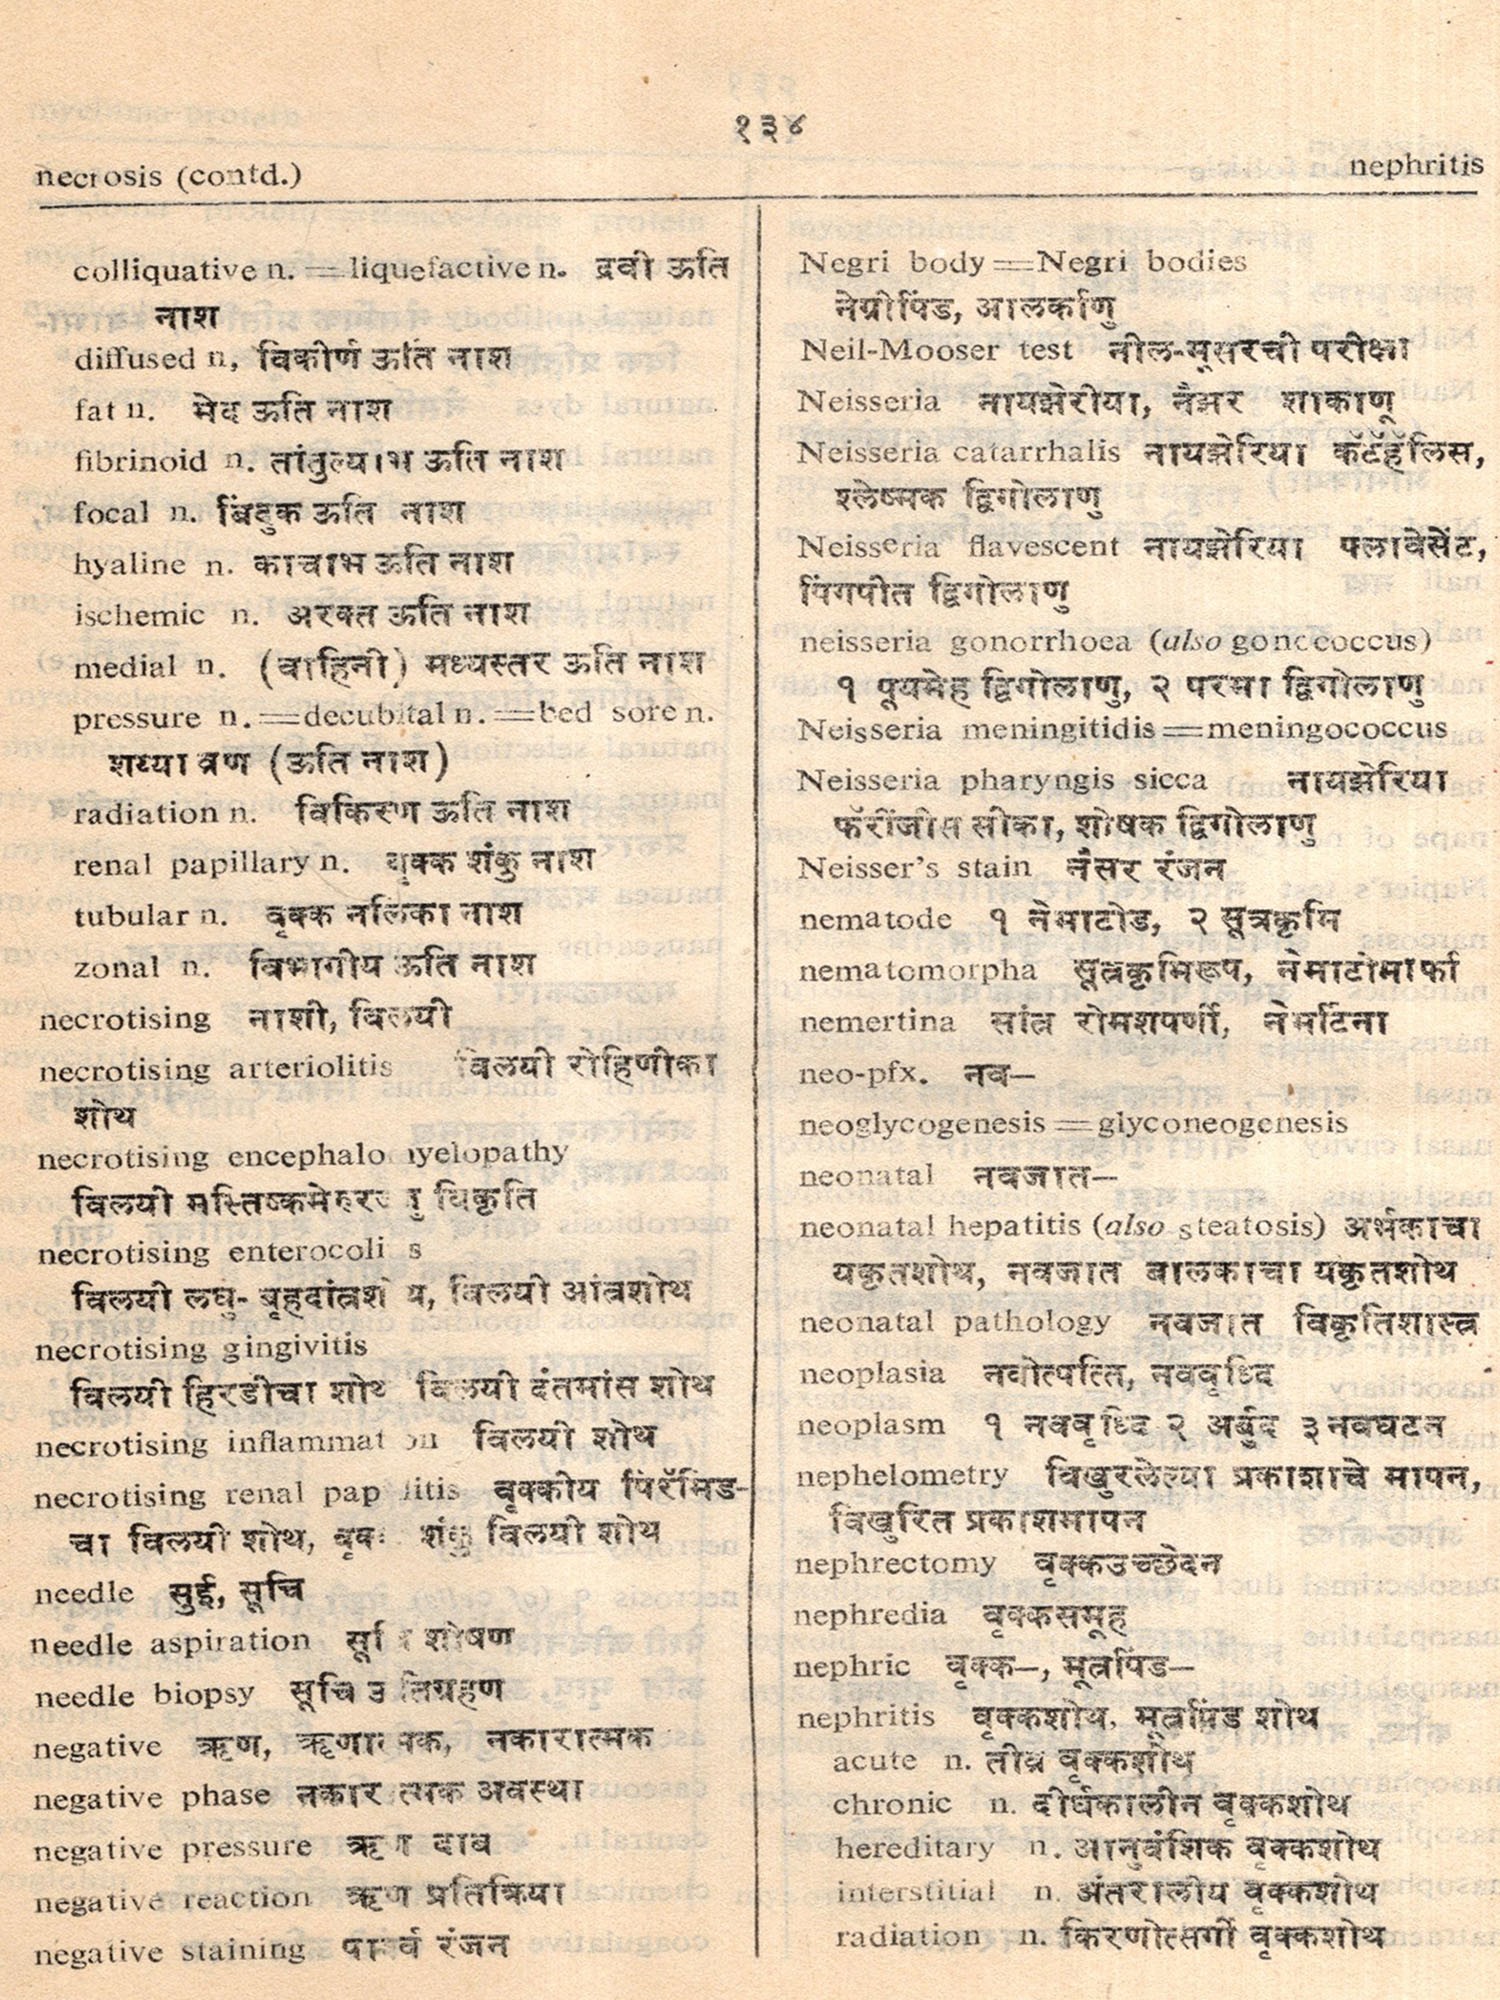 १३४
necrosis (contd.)
nephritis
colliquative n. = liquefactive n. द्रवी ऊति
नाश
diffused n, विकीर्ण ऊति नाश
fat n. मेद ऊति नाश
fibrinoid n. तांतुल्याभ ऊति नाश
focal n. बिंदुक ऊति नाश
hyaline n. काचाभ ऊति नाश
ischemic n. अरक्त ऊति नाश
medial n. (वाहिनी) मध्यस्तर ऊति नाश
pressure n. = decubital n. = bed sore n.
शय्या व्रण (ऊति नाश)
radiation n. विकिरण ऊति नाश
renal papillary n. वृक्क शंकु नाश
tubular n. वृक्क नलिका नाश
zonal n. विभागीय ऊति नाश
necrotising नाशी, विलयी
necrotising arteriolitis विलयी रोहिणीका
शोथ
necrotising encephalo yelopathy
विलयी विकृति
necrotising enterocoli s
विलयी लघु- बृहदांत्रशोथ, विलयी आंत्रशोथ
necrotising gingivitis
विलयी हिरडीचा शोथ विलयी दंतमांस शोथ
necrotising inflammation विलयी शोथ
necrotising renal papillitis वृक्कीय पिरॅमिड-
चा विलयी शोथ, वृक्क शंकु विलयी शोथ
needle सुई, सूचि
needle aspiration सूचि शोषण
needle biopsy सूचि ऊतिग्रहण
negative ऋण, ऋणात्मक, नकारात्मक
negative phase नकारात्मक अवस्था
negative pressure ऋण दाब
negative reaction ऋण प्रतिक्रिया
negative staining पार्श्व रंजन
Negri body = Negri bodies
नेग्रीपिंड, आलर्काणु
Neil-Mooser test नील-मूसरची परीक्षा
Neisseria नायझेरीया, नैझर शाकाणू
Neisseria catarrhalis नायझेरिया कॅटॅर्हॅलिस,
श्लेष्मक द्विगोलाणु
Neisseria flavescent नायझेरिया फ्लावेसेंट,
पिंगपीत द्विगोलाणु
neisseria gonorrhoea (also gonococcus)
१ पूयमेह द्विगोलाणु, २ परमा द्विगोलाणु
Neisseria meningitidis = meningococcus
Neisseria pharyngis sicca नायझेरिया
फॅरींजीस सीका, शोषक द्विगोलाणु
Neisser's stain नैसर रंजन
nematode १ नेमाटोड, २ सूत्रकृमि
nematomorpha सूत्रकृमिरूप, नेमाटोमार्फा
nemertina सांत्र रोमशपर्णी, नेमर्टिना
neo-pfx. नव—
neoglycogenesis = glyconeogenesis
neonatal नवजात—
neonatal hepatitis (also steatosis) अर्भकाचा
यकृतशोथ, नवजात बालकाचा यकृतशोथ
neonatal pathology नवजात विकृतिशास्त्र
neoplasia नवोत्पत्ति, नववृध्दि
neoplasm १ नववृध्दि २ अर्बुद ३ नवघटन
nephelometry विखुरलेल्या प्रकाशाचे मापन,
विखुरित प्रकाशमापन
nephrectomy वृक्कउच्छेदन
nephredia वृक्कसमूह
nephric वृक्क—, मूत्रपिंड—
nephritis वृक्कशोथ, मूत्रपिंड शोथ
acute n. तीव्र वृक्कशोथ
chronic n. दीर्घकालीन वृक्कशोथ
hereditary n. आनुवंशिक वृक्कशोथ
interstitial n. अंतरालीय वृक्कशोथ
radiation n. किरणोत्सर्गी वृक्कशोथ